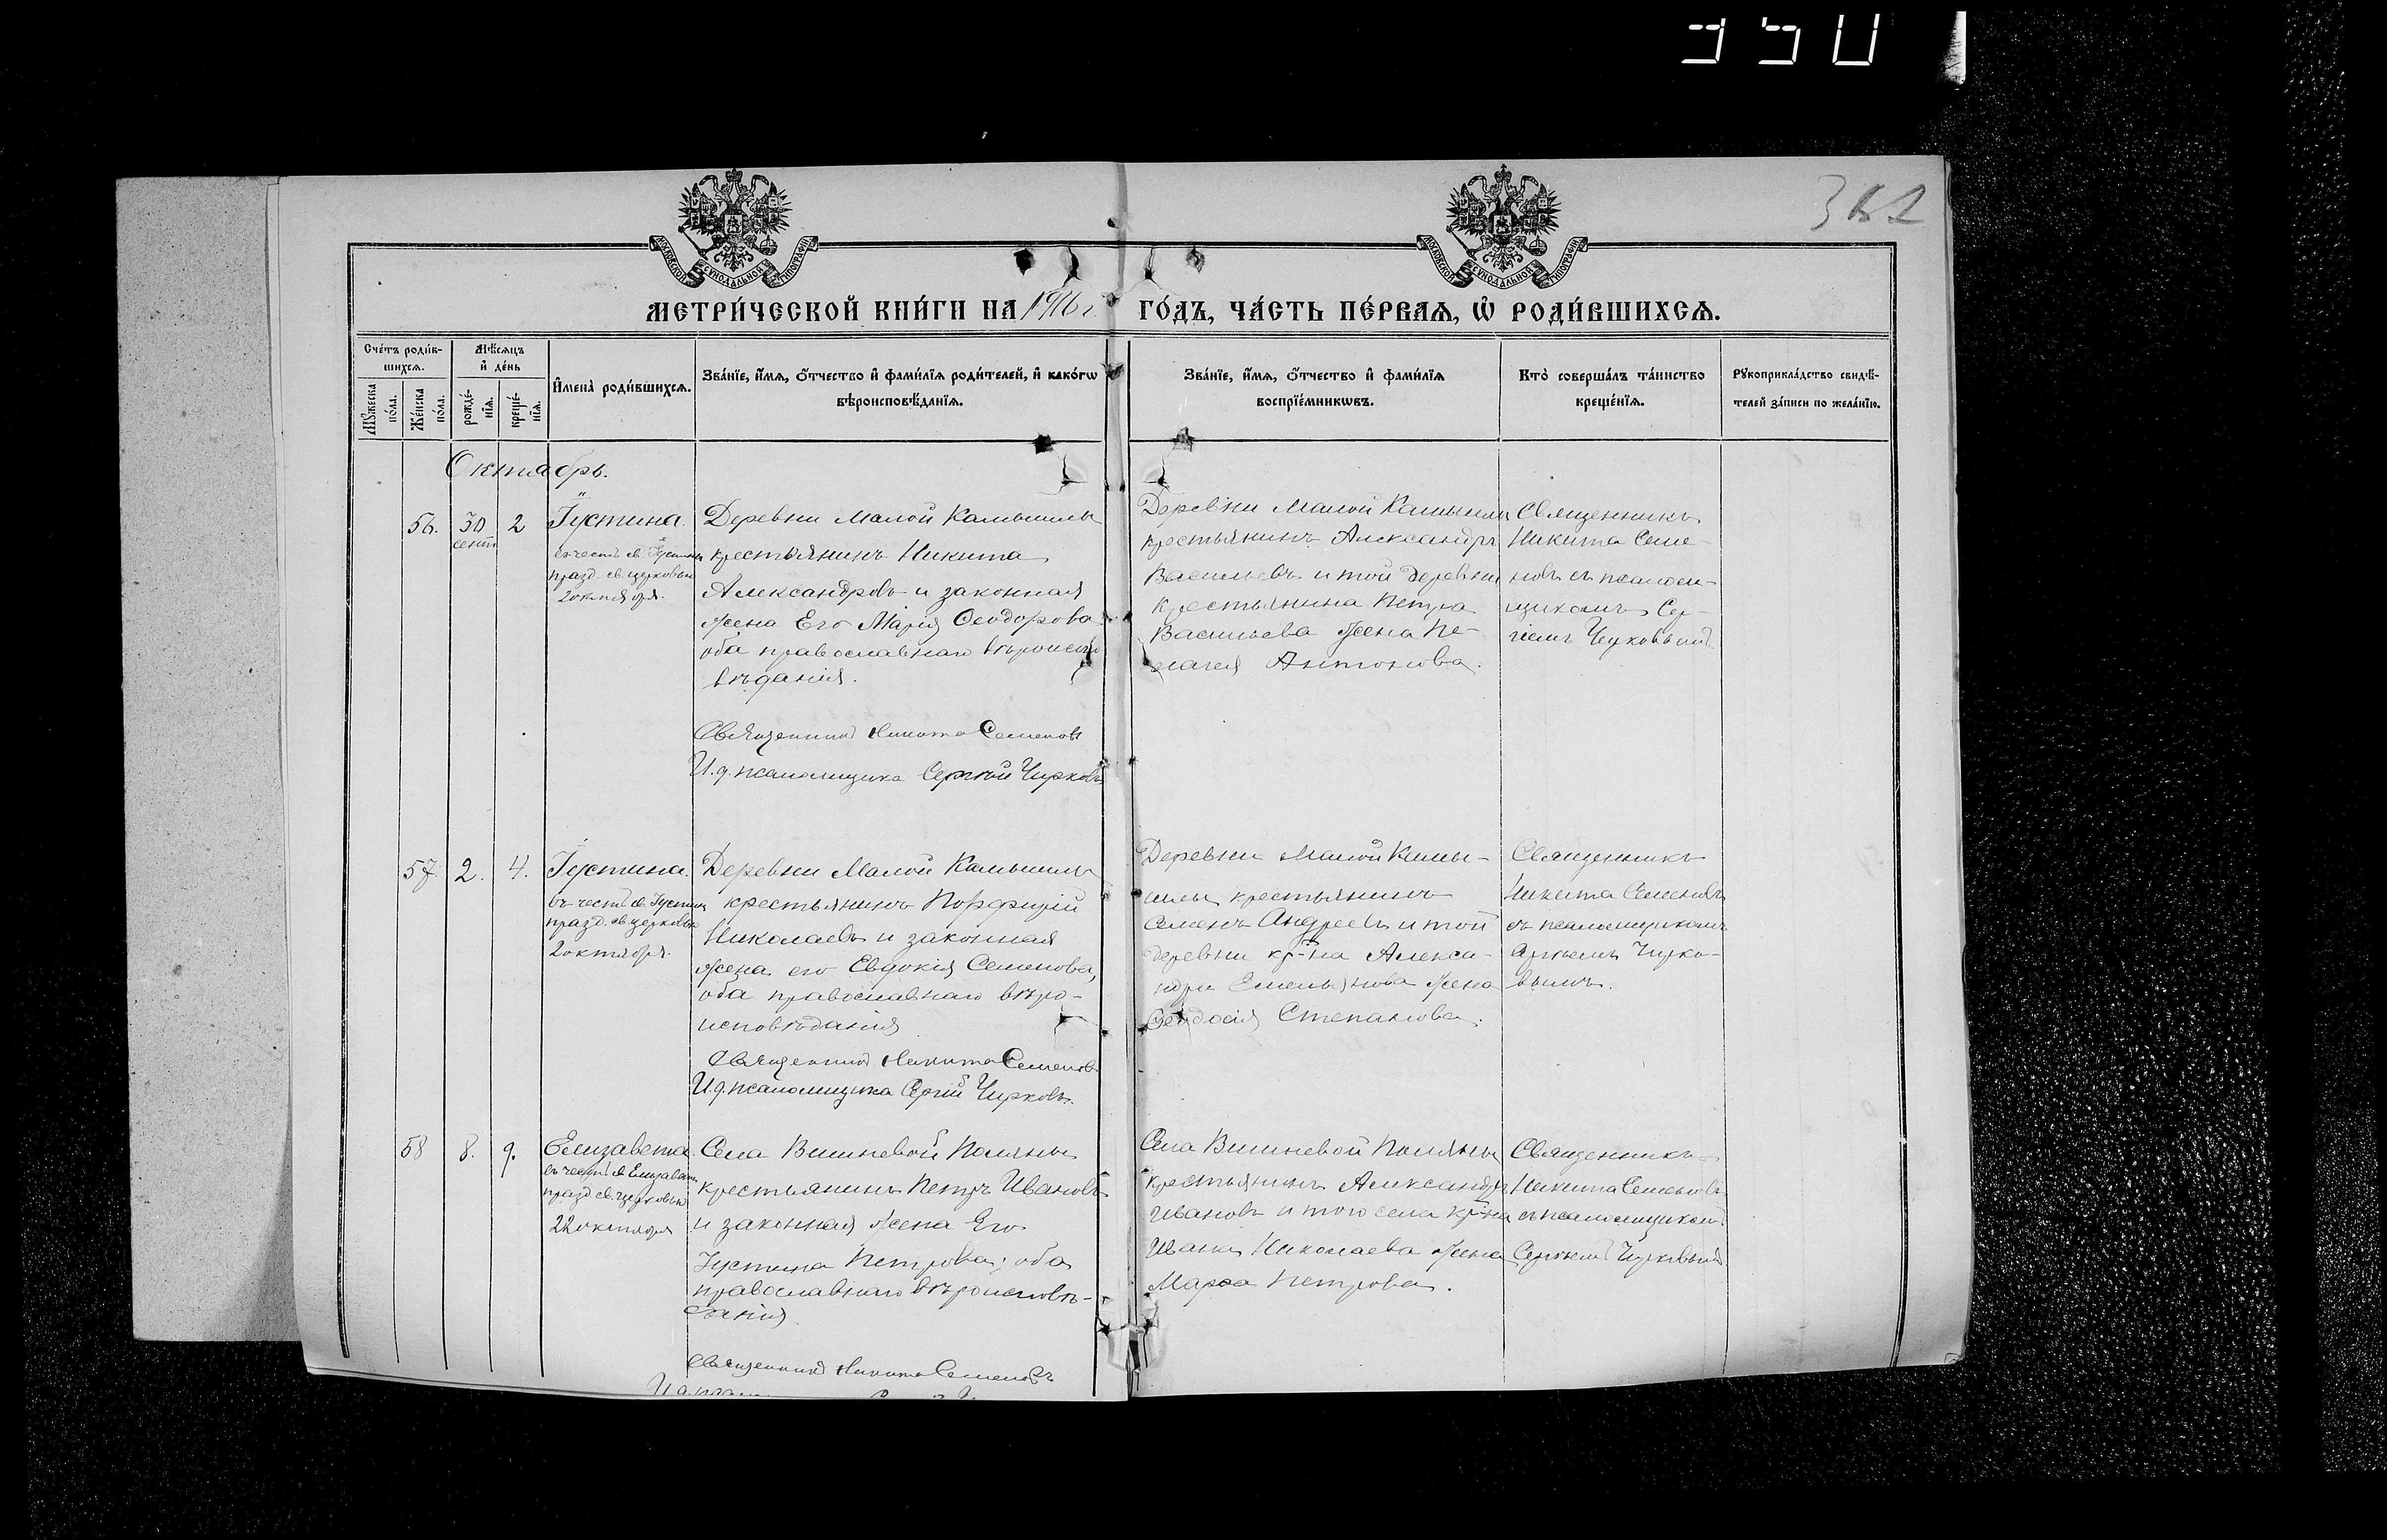 350
382
МОСКОВСКОЙ СѴНОДАЛЬНОЙ ТИПОГРАФІИ
МОСКОВСКОЙ СѴНОДАЛЬНОЙ ТИПОГРАФІИ
МЕТРИ́ЧЕСКОЙ КНИ́ГИ НА 1916 г. ГО́ДЪ, ЧА́СТЬ ПЕ́РВАѦ, Ѡ҆ РОДИ́ВШИХСѦ.
Сче́тъ роди́в-
шихсѧ.
Мꙋ́жеска по́ла.
Же́нска по́ла.
Мѣ́сѧцъ
и҆ де́нь
рожде́-
нїѧ.
креще́-
нїѧ.
И҆мена̀ роди́вшихсѧ.
Зва́нїе, и҆́мѧ, ѻ҆́тчество и҆ фами́лїѧ роди́телей, и҆ како́гѡ
вѣроисповѣ́данїѧ.
Зва́нїе, и҆́мѧ, ѻ҆́тчество и҆ фами́лїѧ
воспрїе́мникѡвъ.
Кто̀ соверша́лъ та́инство
креще́нїѧ.
Рꙋкоприкла́дство свидѣ́-
телей за́писи по жела́нїю.
Октябрь.
56. 30 сент. 2
Іустина.
въ честь св. Іустины
празд. св. церковью
2 октября.
Деревни Малой Камышлы
крестьянинъ Никита
Александровъ и законная
жена Его Марія Ѳеодорова
оба православнаго вѣроиспо
вѣданія.
Священникъ Никита Семеновъ
И. д. псаломщика Сергѣй Чирковъ
Деревни Малой Камышлы
крестьянинъ Александръ
Васильевъ и той деревни
крестьянина Петра
Васильева жена Пе-
лагея Антонова.
Священникъ
Никита Семе-
новъ съ псалом-
щикомъ Сер-
гіемъ Чирковымъ
57. 2. 4.
Іустина.
въ честь св. Іустины
празд. св. церковью
2 октября.
Деревни Малой Камышлы
крестьянинъ Порфирій
Николаевъ и законная
жена его Евдокія Семенова,
оба православнаго вѣро-
исповѣданія
Священникъ Никита Семеновъ
И. д. псаломщика Сергій Чирковъ.
Деревни Малой Камы-
шлы крестьянинъ
Семенъ Андреевъ и той
деревни кр-на Алекса-
ндра Емельянова жена
Ѳеодосія Степанова.
Священникъ
Никита Семеновъ
съ псаломщикомъ
Чирко-
вымъ.
58 8. 9.
Елизавета.
въ честь св. Елизаветы
празд. св. церковью
22 октября
Села Вишневой Поляны
крестьянинъ Петръ Ивановъ
и законная жена Его
Іустина Петрова; оба
православнаго вѣроисповѣ-
данія.
Священникъ Никита Семеновъ
Села Вишневой Поляны
крестьянинъ Александръ
Ивановъ и того села кр-на
Ивана Николаева жена
Марѳа Петрова.
Священникъ
Никита Семеновъ
съ псаломщикомъ
Сергѣемъ Чирковымъ